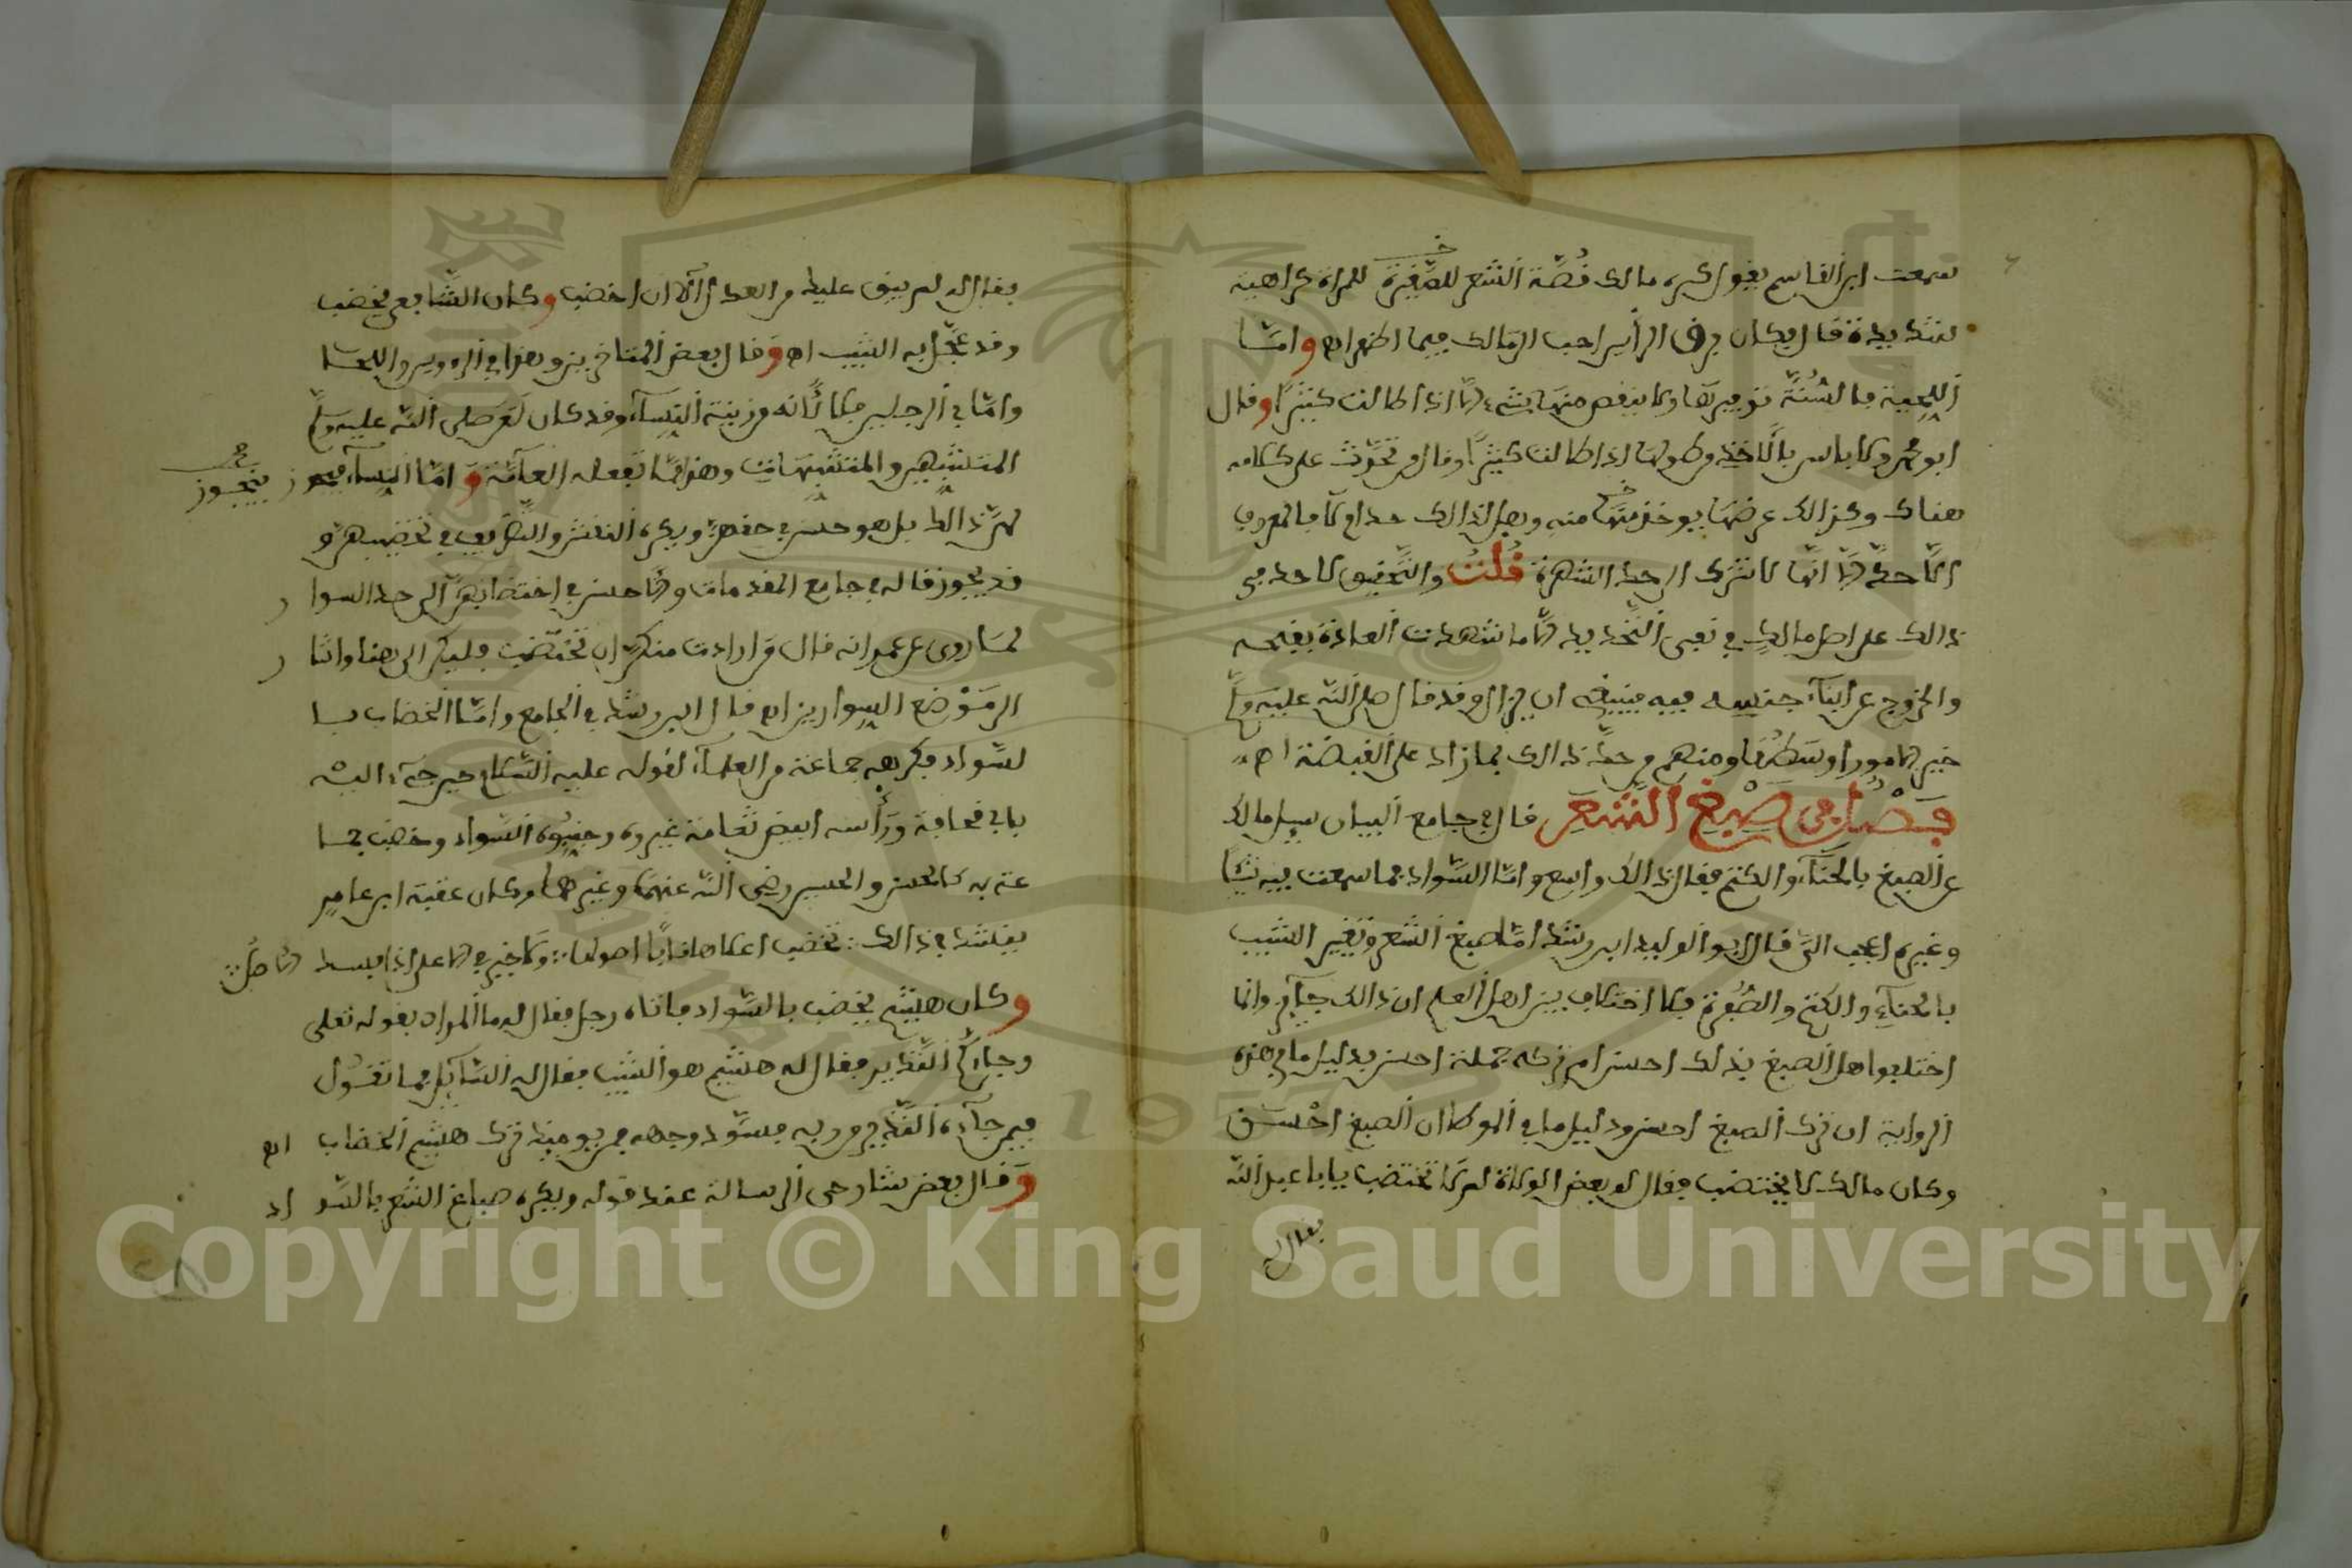 سمعت ابن القاسم يقول كره مالك قُصّة الشعر للصّغيرة للمراة كراهية
شديدة قال وكان فرق الرأس احب الى مالك فيما اظن اهـ وامّا
اللّحية فالسُنّة توفيرها ولا ينقص منها شيء الّا اذا طالت كثيرًا وقال
ابو محمد ولا باس بالاخذ من طولها اذا طالت كثيرًا وقال
هناك وكذالك عرضها يوخذ منها منه وهل لذالك حد ام لا فالمعروف
لا حدّ الّا انّها لا تترك الى حد الشهرة قُلتُ والتّحقيق لا حد في
ذالك على اصل مالكٍ في نفي التّحديد الّا ما شهدت العادة بقبحه
والخروج عن ابناء جنسه فيه فينبغي ان يزال وقد قال صلى الله عليه وسلّم
خير الامور اوسطها ومنهم من حدّ ذالك بما زاد على القبضة اهـ
فصل في صبغ الشّعر قال في جامع البيان سيل مالك
عن الصبغ بالحنّاء والكتم فقال ذالك واسع وامّا السّواد فما سمعت فيه شيئًا
وغيره اعجب اليّ قال ابو الوليد ابن رشد امّا صبغ الشعر وتغيير الشيب
بالحنّاء والكتم والصّفرة فلا اختلاف بين اهل العلم ان ذالك جآيز وانما
اختلفوا هل الصبغ بذلك احسن ام تركه جملة احسن بدليل ما في هذه
الرواية ان ترك الصبغ احسن ودليل ما في الموطا ان الصبغ احْسَن
وكان مالك لا يختضب فقال له بعض الولاة لم لا تختضب يابا عبد الله
فقال له
فقال له لم يبق عليك من العدل الّا ان اخضب وكان الشّافعي يخضب
وقد عجّل به الشيب اهـ وقال بعض المتاخرين وهذا في الرءوس واللحا
وامّا في الرجلين فلا لأنّه من زينة النسآء وقد كان لعن صلى الله عليه وسلّم
المتشبّهين والمتشبّهات وهذا ممّا تفعله العآمّة وامّا النسآء فيجوز
فيجوز
لهنّ ذالك بل هو حسن في حقهنّ ويكره النقش والتّطريف في تخضيبهنّ و
قد يجوز قاله في جامع المقدمات والاحسن في اختضابهنّ الى حد السوار
لما روي عن عمر انه قال من ارادت منكنّ ان تختضب فليكن الى هنا واشار
الى مَوْضع السوارين اهـ قال ابن رشد في الجامع وامّا الخضاب با
لسّواد فكرهه جماعة من العلماء لقوله عليه السّلام حين جيء اليه
بابي قحافة ورأسه ابيض ثغامة غيروه وجنبوه السّواد وخضب جما
عة به كالحسن والحسين رضي الله عنهما وغيرهما وكان عقبة ابن عامر
ينشد في ذالك : تخضب اعلاها وتابا اصولها :: ولا خير في الاعلى اذا فسد الاصل ::
وكان هشيم يخضب بالسّواد فاتاه رجل فقال له ما المراد بقوله تعلى
وجآءكم النّذير فقال له هشيم هو الشيب فقال له السّآيل فما تقول
فيمن جآءه النّذير من ربه فسوّد وجهه فمن يوميذ ترك هشيم الخضاب اهـ
وقال بعض شارحي الرسالة عند قوله ويكره صباغ الشعر بالسّواد